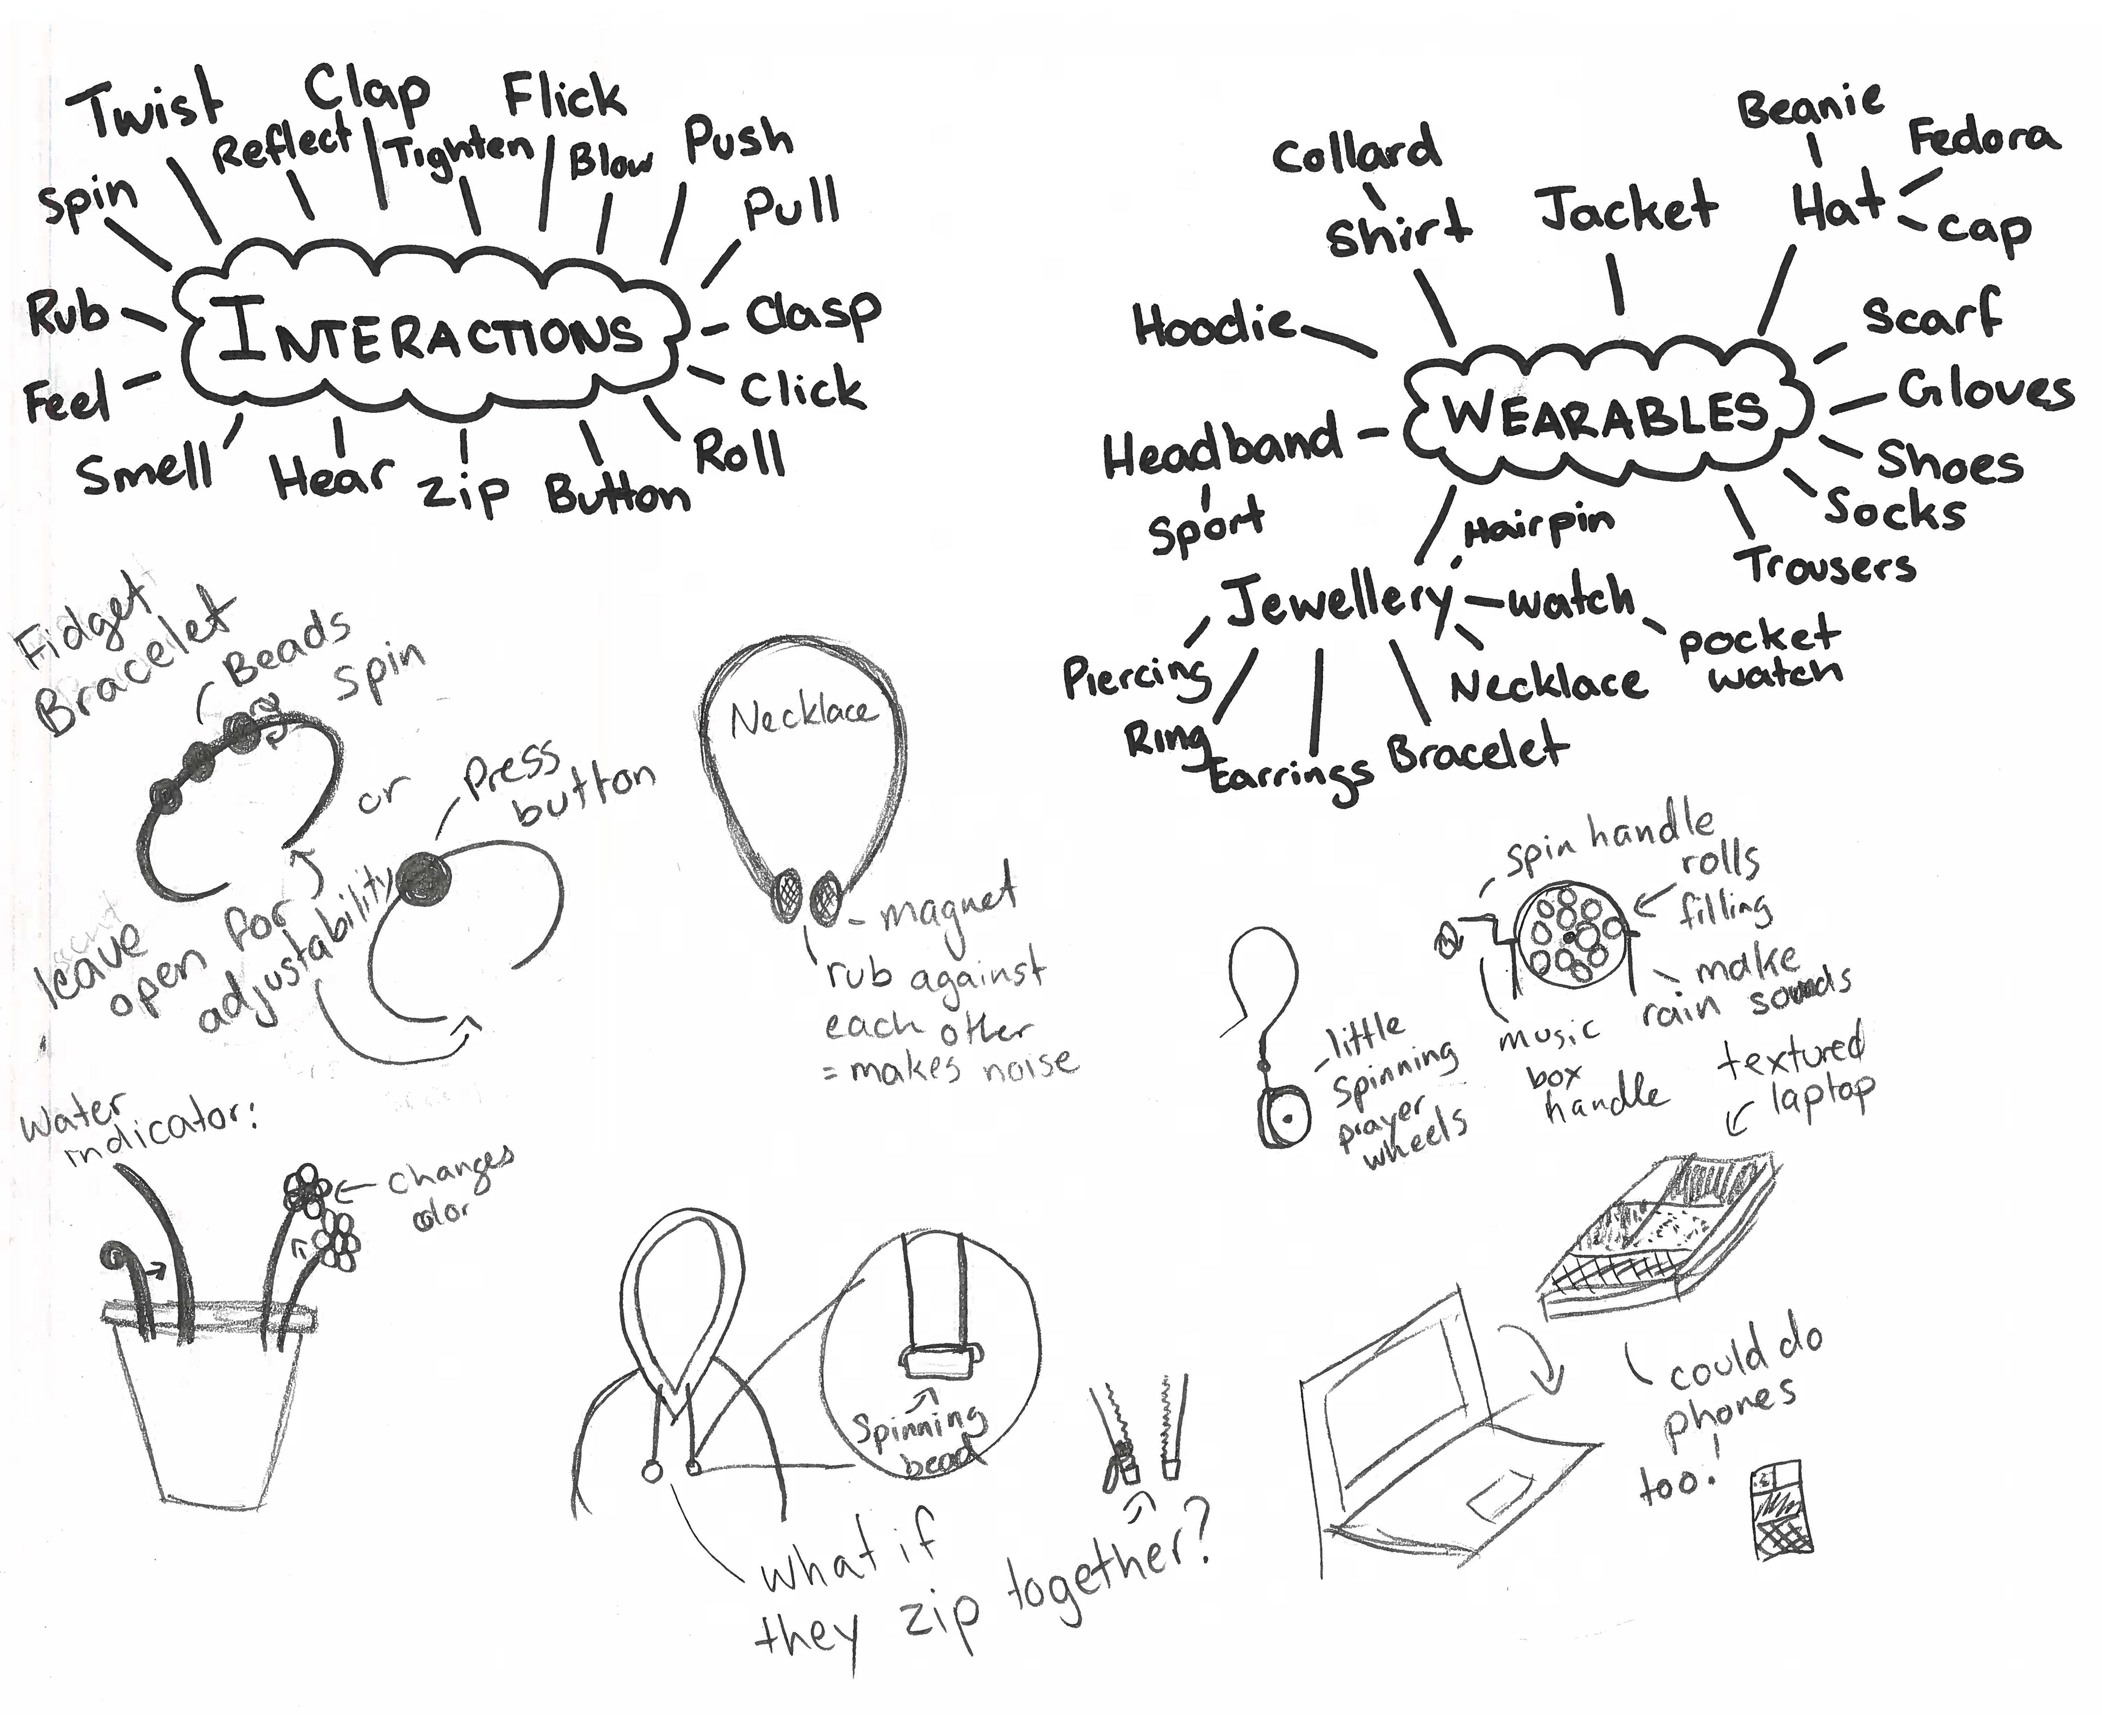 Twist
Clap
Flick
Reflect
Tighten
Blow
Push
Spin
Pull
Rub
INTERACTIONS
Clasp
Feel
Click
Smell
Hear
Zip
Button
Roll
Beanie
Collard
Fedora
Shirt
Jacket
Hat
Cap
Hoodie
Scarf
WEARABLES
Gloves
Headband
Shoes
Sport
Hairpin
Socks
Trousers
Jewellery
Watch
pocket
watch
Piercing
Necklace
Ring
Earrings
Bracelet
Fidget
Bracelet
Beads
spin
or
Press
button
leave
open for
adjustability
Necklace
magnet
rub against
each other
= makes noise
spin handle
rolls
filling
make
rain sounds
music
box
handle
little
spinning
prayer
wheels
textured
laptop
Water
indicator:
changes
color
Spinning
bead
what if
they zip together?
could do
phones
too!